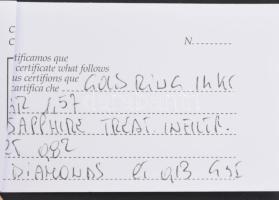 N.
tificamos que
certificate what follows
us certifions que
certifica che GOLD RING 14KT
SAPPHIRE TREAT INFILTR.
CT 0,82
DIAMONDS CT 0,13 G SI